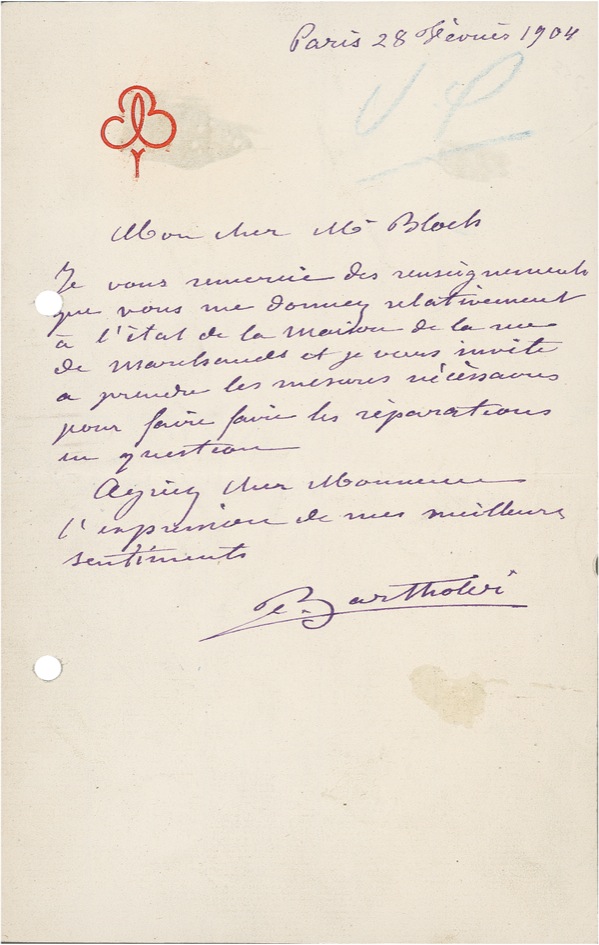 Paris 28 Février 1904
Mon cher Mr Bloch
Je vous remercie des renseignements
que vous me donnez relativement
à l'état de la maison de la rue
de Marchands et je vous invite
a prendre les mesures nécessaires
pour faire faire les réparations
en question
Agréez cher Monsieur
l'expression de mes meilleurs
sentiments
Bartholdi